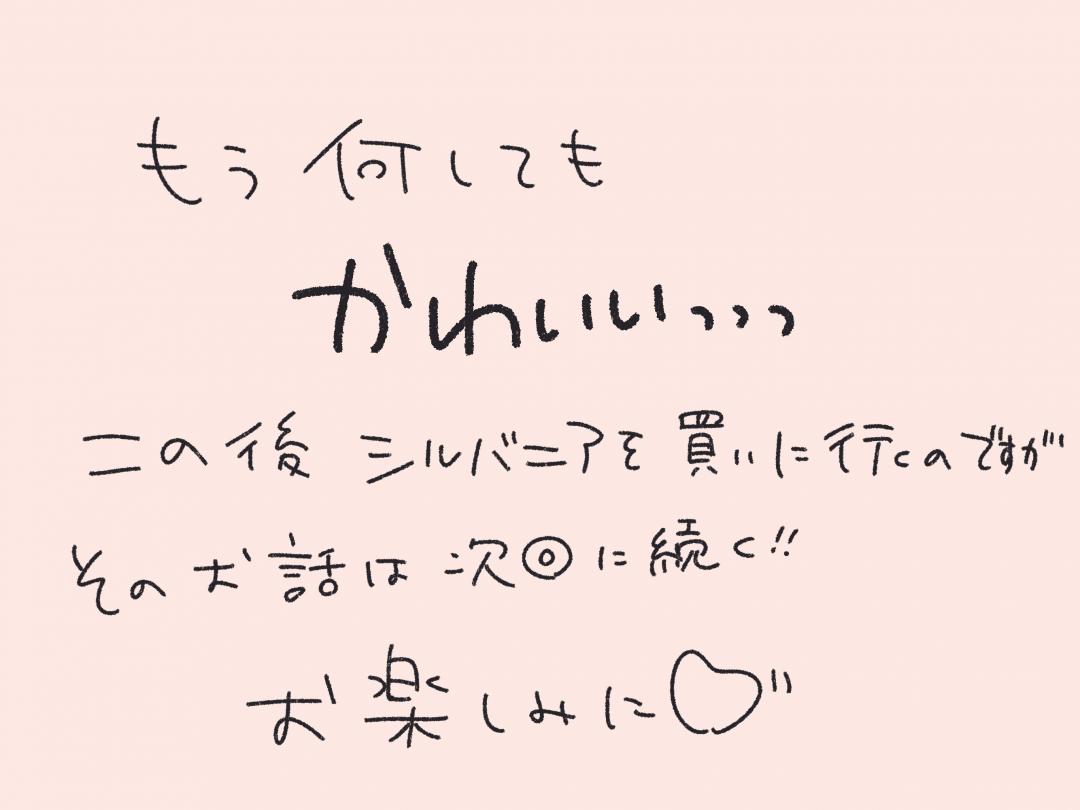 もう 何しても
かわいい、、、
この後 シルバニアを 買いに行くのですが
そのお話は 次回に続く!!
お楽しみに♡"